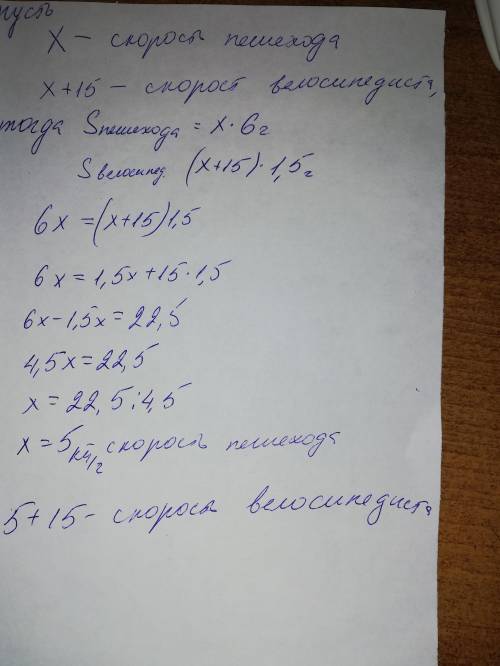 пусть
x – скорость пешехода
x+15 – скорост велосипедиста,
тогда Sпешехода = x·6г
Sвелосипед. (x+15)·1,5г
6x = (x+15)1,5
6x = 1,5x+15·1,5
6x-1,5x = 22,5
4,5x = 22,5
x = 22,5:4,5
x = 5 км/г скорость пешехода
5+15 – скорость велосипедиста